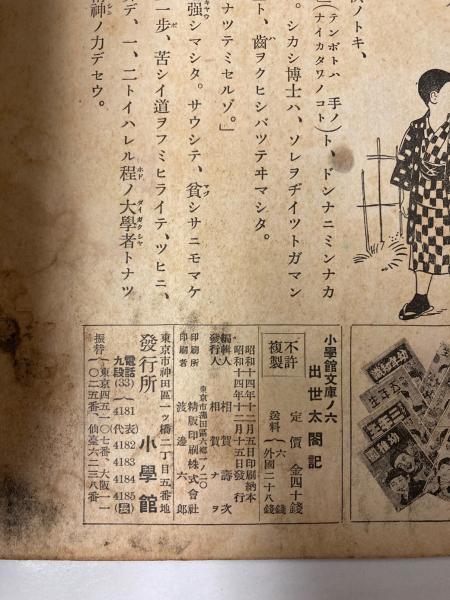 ノトキ、
(テンボトハ 手ノ
ナイカタワノコト)ト、ドンナニミンナカ
。シカシ博士ハ、ソレヲヂイツトガマン
ト、歯ヲクヒシバツテヰマシタ。
ナツテミセルゾ。」
强シマシタ。サウシテ、貧シサニモマケ
一步、苦シイ道ヲフミヒライテ、ツヒニ、
デ、一、二トイハレル程ノ大學者トナツ
神ノ力デセウ。
小學館文庫ノ六
出世太閤記
不許複製
定價 金四十錢
送料 六錢
外國二十八錢
昭和十四年十二月五日印刷納本
昭和十四年十二月十五日發行
編輯人 相賀壽次
發行人 相賀ナヲ
東京市蒲田區六鄕一ノ二〇
印刷所 精版印刷株式會社
印刷者 渡邊六郎
東京市神田區一ツ橋二丁目五番地
發行所 小學館
電話九段(33)4181(代表)4182 4183 4184 4185
振替